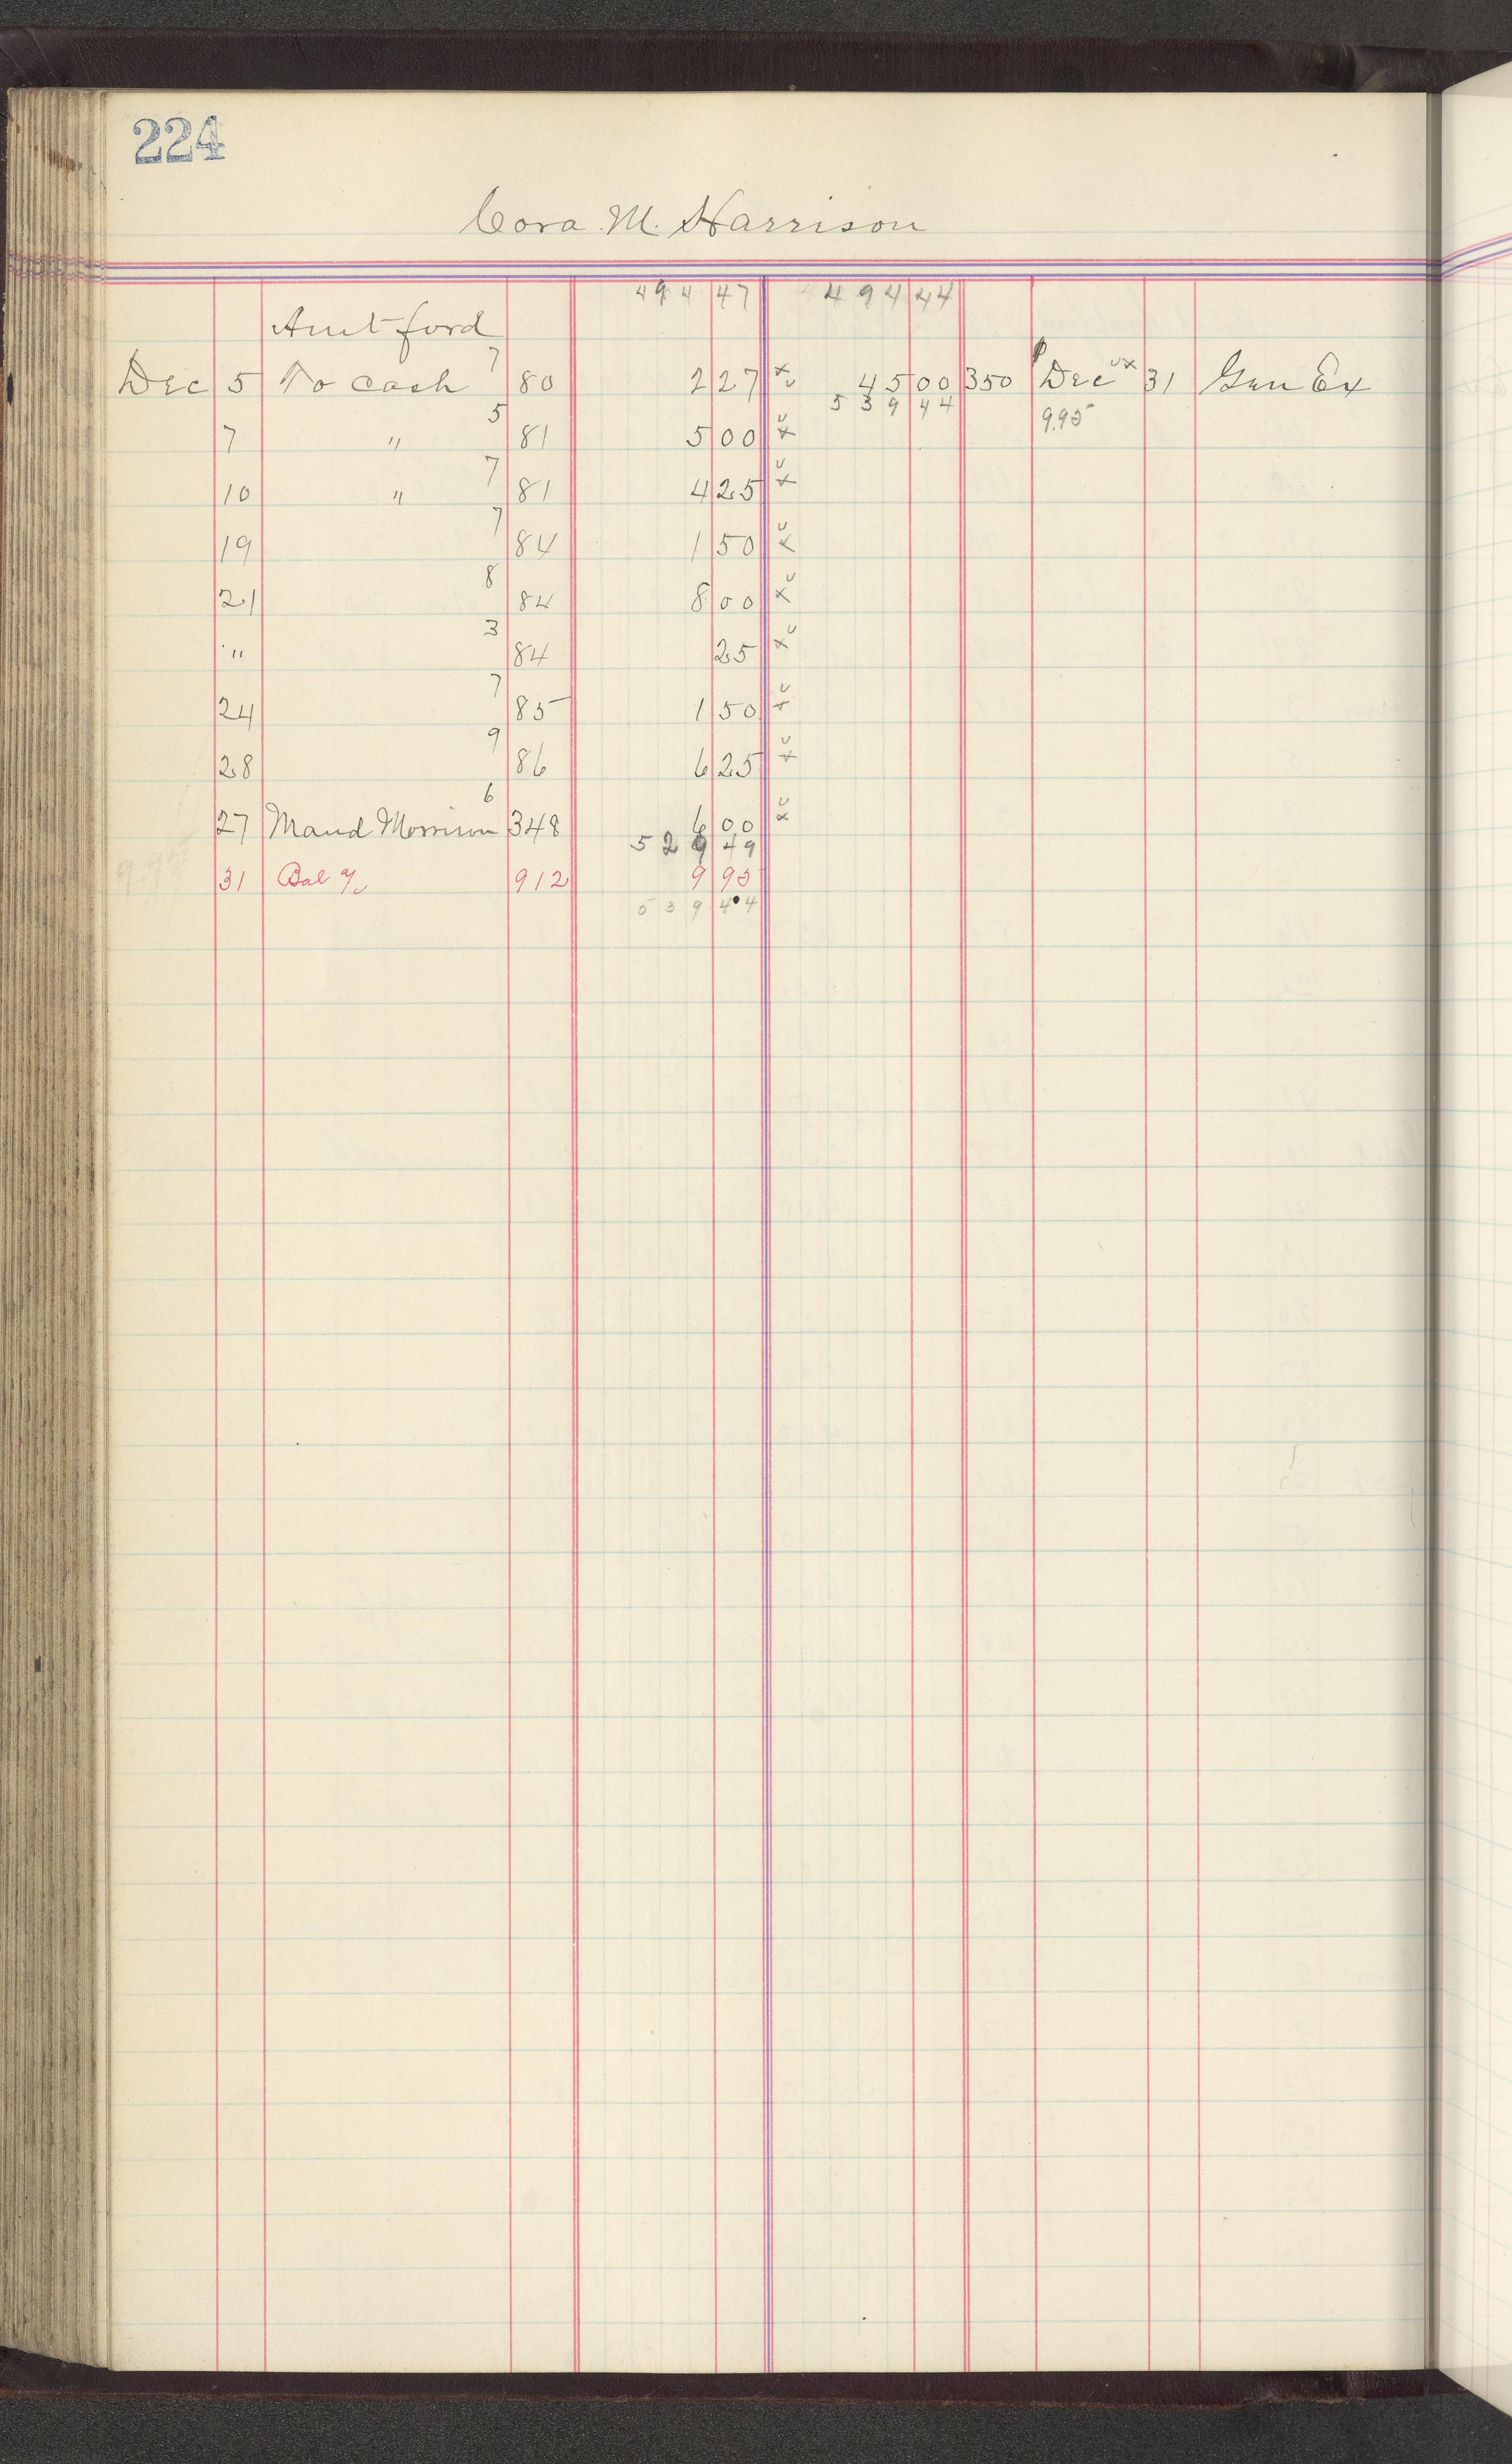 224
Cora M. Harrison
494 47 494 44
Amt ford
Dec 5 To cash 7 80 2 27 x v 45 00 350 Dec v x 31 Gen Ex
539 44 9.95
7 " 5 81 5 00 v x
10 " 7 81 4 25 v x
19 7 84 1 50 v x
21 8 84 8 00 x v
" 3 84 25 x v
24 7 85 1 50 v x
28 9 86 6 25 v x
27 Maud Morrison 6 348 6 00 v x
529 49
9.95 31 Bal 912 9 95
539 44